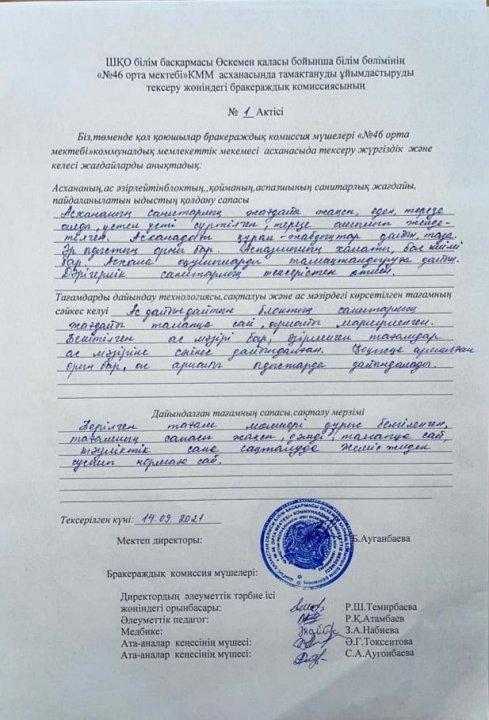 ШҚО білім басқармасы Өскемен қаласы бойынша білім бөлімінің
«№46 орта мектебі»КММ асханасында тамақтануды ұйымдастыруды
тексеру жөніндегі бракераждық комиссиясының
№ 1 Актісі
Біз,төменде қол қоюшылар бракераждық комиссия мүшелері «№46 орта
мектебі»коммуналдық мемлекеттік мекемесі асханасыда тексеру жүргіздік және
келесі жағдайларды анықтадық:
Асхананың,ас әзірлейтінблоктың,,қойманың,аспазшының санитарлық жағдайы,
пайдаланылатын ыдыстың қолдану сапасы
Асхананың санитарлық жағдайы жақсы, еден, терезе
алды, үстел үсті сүртілген, терезе
телген. Асханадағы құрал-жабдықтар дайын, таза.
Әр ыдыстың орны бар. Аспазшының халаты, бас киімі
бар. Асхана оқушыларды тамақтандыруға дайын.
Дәрігерлік санитарлық тексерістен өткен.
Тағамдарды дайындау технологиясы,сақталуы және ас мәзірдегі көрсетілген тағамның
сәйкес келуі Ас дайындайтын блоктың санитарлық
жағдайы талапқа сай, ыдыстар маркерленген.
Бекітілген ас мәзірі бар, әзірленген тағамдар
ас мәзіріне сәйкес дайындалған. арналған
орын бар, ас арнайы ыдыстарда дайындалады.
Дайындалған тағамның сапасы,сақталу мерзімі
Берілген тағам мөлшері дұрыс бөлінген,
тағамның сапасы жақсы, дәмді, талапқа сай,
тәуліктік сынама сақталуда. Жеміс-жиден
нормаға сай.
Тексерілген күні: 14.09.2021
Мектеп директоры: Б.Ауганбаева
Бракераждық комиссия мүшелері:
Директордың әлеуметтік тәрбие ісі
жөніндегі орынбасары: Р.Ш.Темирбаева
Әлеуметтік педагог: Р.Қ.Атамбаев
Медбике: З.А.Набиева
Ата-аналар кеңесінің мүшесі: Ә.Г.Токсеитова
Ата-аналар кеңесінің мүшесі: С.А.Аугонбаева